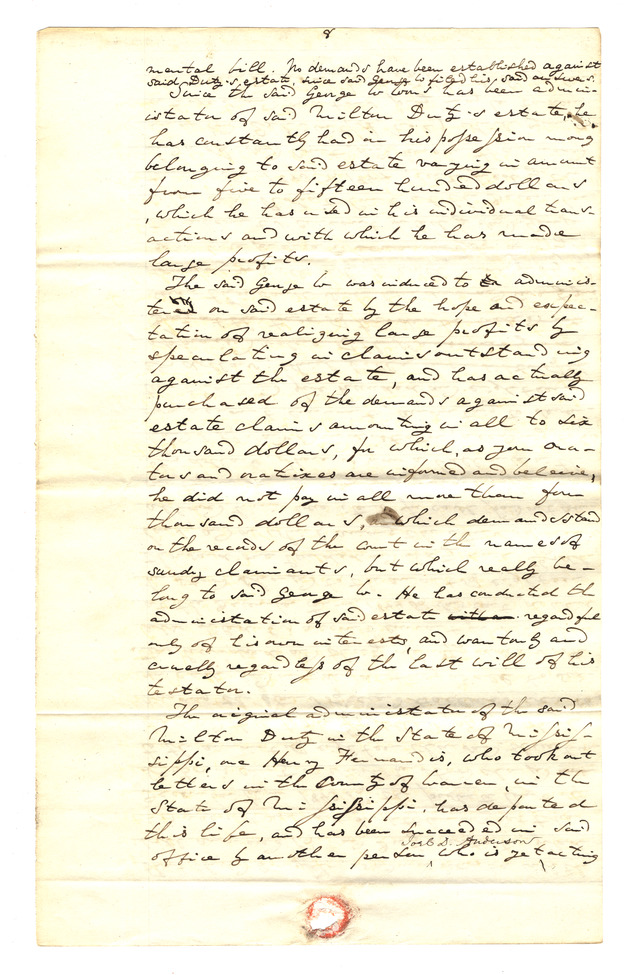 8
mental bill. No demands have been established against
said Duty's estate, since said George W filed his said answers.
Since the said George W Coons has been admin-
istrator of said Milton Duty's estate, he
has constantly had in his possession money
belonging to said estate varying in amount
from five to fifteen hundred dollars
, which he has used in his individual trans-
actions and with which he has made
large profits.
The said George W was induced to adminis-
ter on said estate by the hope and expec-
tation of realizing large profits by
speculating in claims outstanding
against the estate, and has actually
purchased of the demands against said
estate claims amounting in all to six
thousand dollars, for which, as your ora-
tors and oratrixes are informed and believe,
he did not pay in all more than four
thousand dollars, which demands stand
on the records of the court in the names of
sundry claimants, but which really be-
long to said George W. He has conducted the
administration of said estate regardful
only of his own interests, and wantonly and
cruelly regardless of the last will of his
testator.
The original administrator of the said
Milton Duty in the State of Missis-
sippi, one Henry Fernandis, who took out
letters in the County of Warren, in the
State of Mississippi, has departed
this life, and has been succeeded in said
office by another person, Jos. D. Anderson who is yet acting